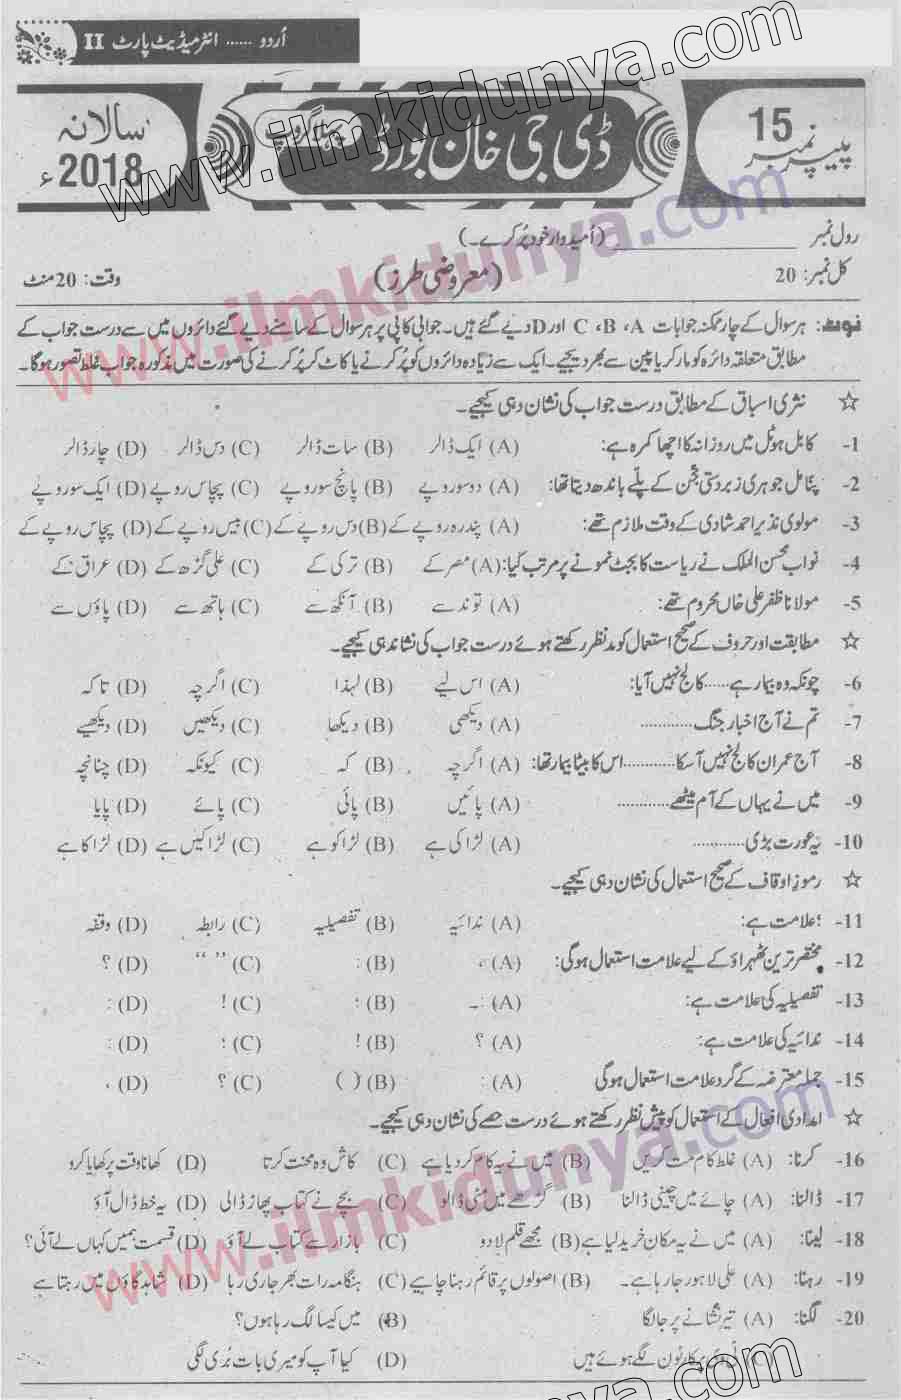 اُردو ...... انٹرمیڈیٹ پارٹ II
پیپر نمبر 15
ڈی جی خان بورڈ
پہلا گروپ
سالانہ 2018ء
رول نمبر ____________ (اُمیدوار خود پُر کرے۔)
کل نمبر: 20 (معروضی طرز) وقت: 20 منٹ
نوٹ: ہر سوال کے چار ممکنہ جوابات A، B، C اور D دیے گئے ہیں۔ جوابی کاپی پر ہر سوال کے سامنے دیے گئے دائروں میں سے درست جواب کے
مطابق متعلقہ دائرہ کو مارکر یا پین سے بھر دیجیے۔ ایک سے زیادہ دائروں کو پُر کرنے یا کاٹ کر پُر کرنے کی صورت میں مذکورہ جواب غلط تصور ہوگا۔
☆ نثری اسباق کے مطابق درست جواب کی نشان دہی کیجیے۔
1- کابل ہوٹل میں روزانہ کا اچھا کمرہ ہے: (A) ایک ڈالر (B) سات ڈالر (C) دس ڈالر (D) چار ڈالر
2- پنامل جوہری زبردستی جمن کے پلے باندھ دیتا تھا: (A) دو سو روپے (B) پانچ سو روپے (C) پچاس روپے (D) ایک سو روپے
3- مولوی نذیر احمد شادی کے وقت ملازم تھے: (A) پندرہ روپے کے (B) دس روپے کے (C) بیس روپے کے (D) پچاس روپے کے
4- نواب محسن الملک نے ریاست کا بجٹ نمونے پر مرتب کیا: (A) مصر کے (B) ترکی کے (C) علی گڑھ کے (D) عراق کے
5- مولانا ظفر علی خاں محروم تھے: (A) توند سے (B) آنکھ سے (C) ہاتھ سے (D) پاؤں سے
☆ مطابقت اور حروف کے صحیح استعمال کو مدنظر رکھتے ہوئے درست جواب کی نشاندہی کیجیے۔
6- چونکہ وہ بیمار ہے...... کالج نہیں آیا: (A) اس لیے (B) لہٰذا (C) اگرچہ (D) تاکہ
7- تم نے آج اخبار جنگ ............ (A) دیکھی (B) دیکھا (C) دیکھیں (D) دیکھیے
8- آج عمران کالج نہیں آسکا ............ اس کا بیٹا بیمار تھا: (A) اگرچہ (B) کہ (C) کیونکہ (D) چنانچہ
9- میں نے یہاں کے آم میٹھے ............ (A) پائیں (B) پائی (C) پائے (D) پایا
10- یہ عورت بڑی ............ (A) لڑاکی ہے (B) لڑاکو ہے (C) لڑاکیں ہے (D) لڑاکا ہے
☆ رموزِ اوقاف کے صحیح استعمال کی نشان دہی کیجیے۔
11- ؛ علامت ہے: (A) ندائیہ (B) تفصیلیہ (C) رابطہ (D) وقفہ
12- مختصر ترین ٹھہراؤ کے لیے علامت استعمال ہوگی: (A) ، (B) : (C) “ ” (D) ؟
13- تفصیلیہ کی علامت ہے: (A) :۔ (B) ؛ (C) ! (D) :
14- ندائیہ کی علامت ہے: (A) ؟ (B) ! (C) ؛ (D) :
15- جملہ معترضہ کے گرد علامت استعمال ہوگی (A) : (B) ( ) (C) ؟ (D) ،
☆ امدادی افعال کے استعمال کو پیش نظر رکھتے ہوئے درست حصے کی نشان دہی کیجیے۔
16- کرنا: (A) غلط کام مت کریں (B) میں نے یہ کام کر دیا ہے (C) کاش وہ محنت کرتا (D) کھانا وقت پر کھایا کرو
17- ڈالنا: (A) چائے میں چینی ڈالنا (B) گڑھے میں مٹی ڈالو (C) بچے نے کتاب پھاڑ ڈالی (D) یہ خط ڈال آؤ
18- لینا: (A) میں نے یہ مکان خرید لیا ہے (B) مجھے قلم لا دو (C) بازار سے کتاب لے آؤ (D) قسمت ہمیں کہاں لے آئی؟
19- رہنا: (A) علی لاہور جا رہا ہے۔ (B) اصولوں پر قائم رہنا چاہیے (C) ہنگامہ رات بھر جاری رہا (D) شاہد گاؤں میں رہتا ہے
20- لگنا: (A) تیر نشانے پر جا لگا (B) میں کیسا لگ رہا ہوں؟
(C) ٹی وی پر کارٹون لگے ہوئے ہیں (D) کیا آپ کو میری بات بُری لگی
www.ilmkidunya.com
www.ilmkidunya.com
www.ilmkidunya.com
www.ilmkidunya.com